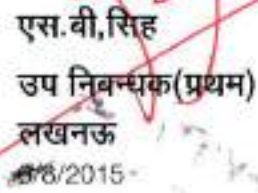 एस.बी,सिह
उप निबन्धक(प्रथम)
लखनऊ
/8/2015